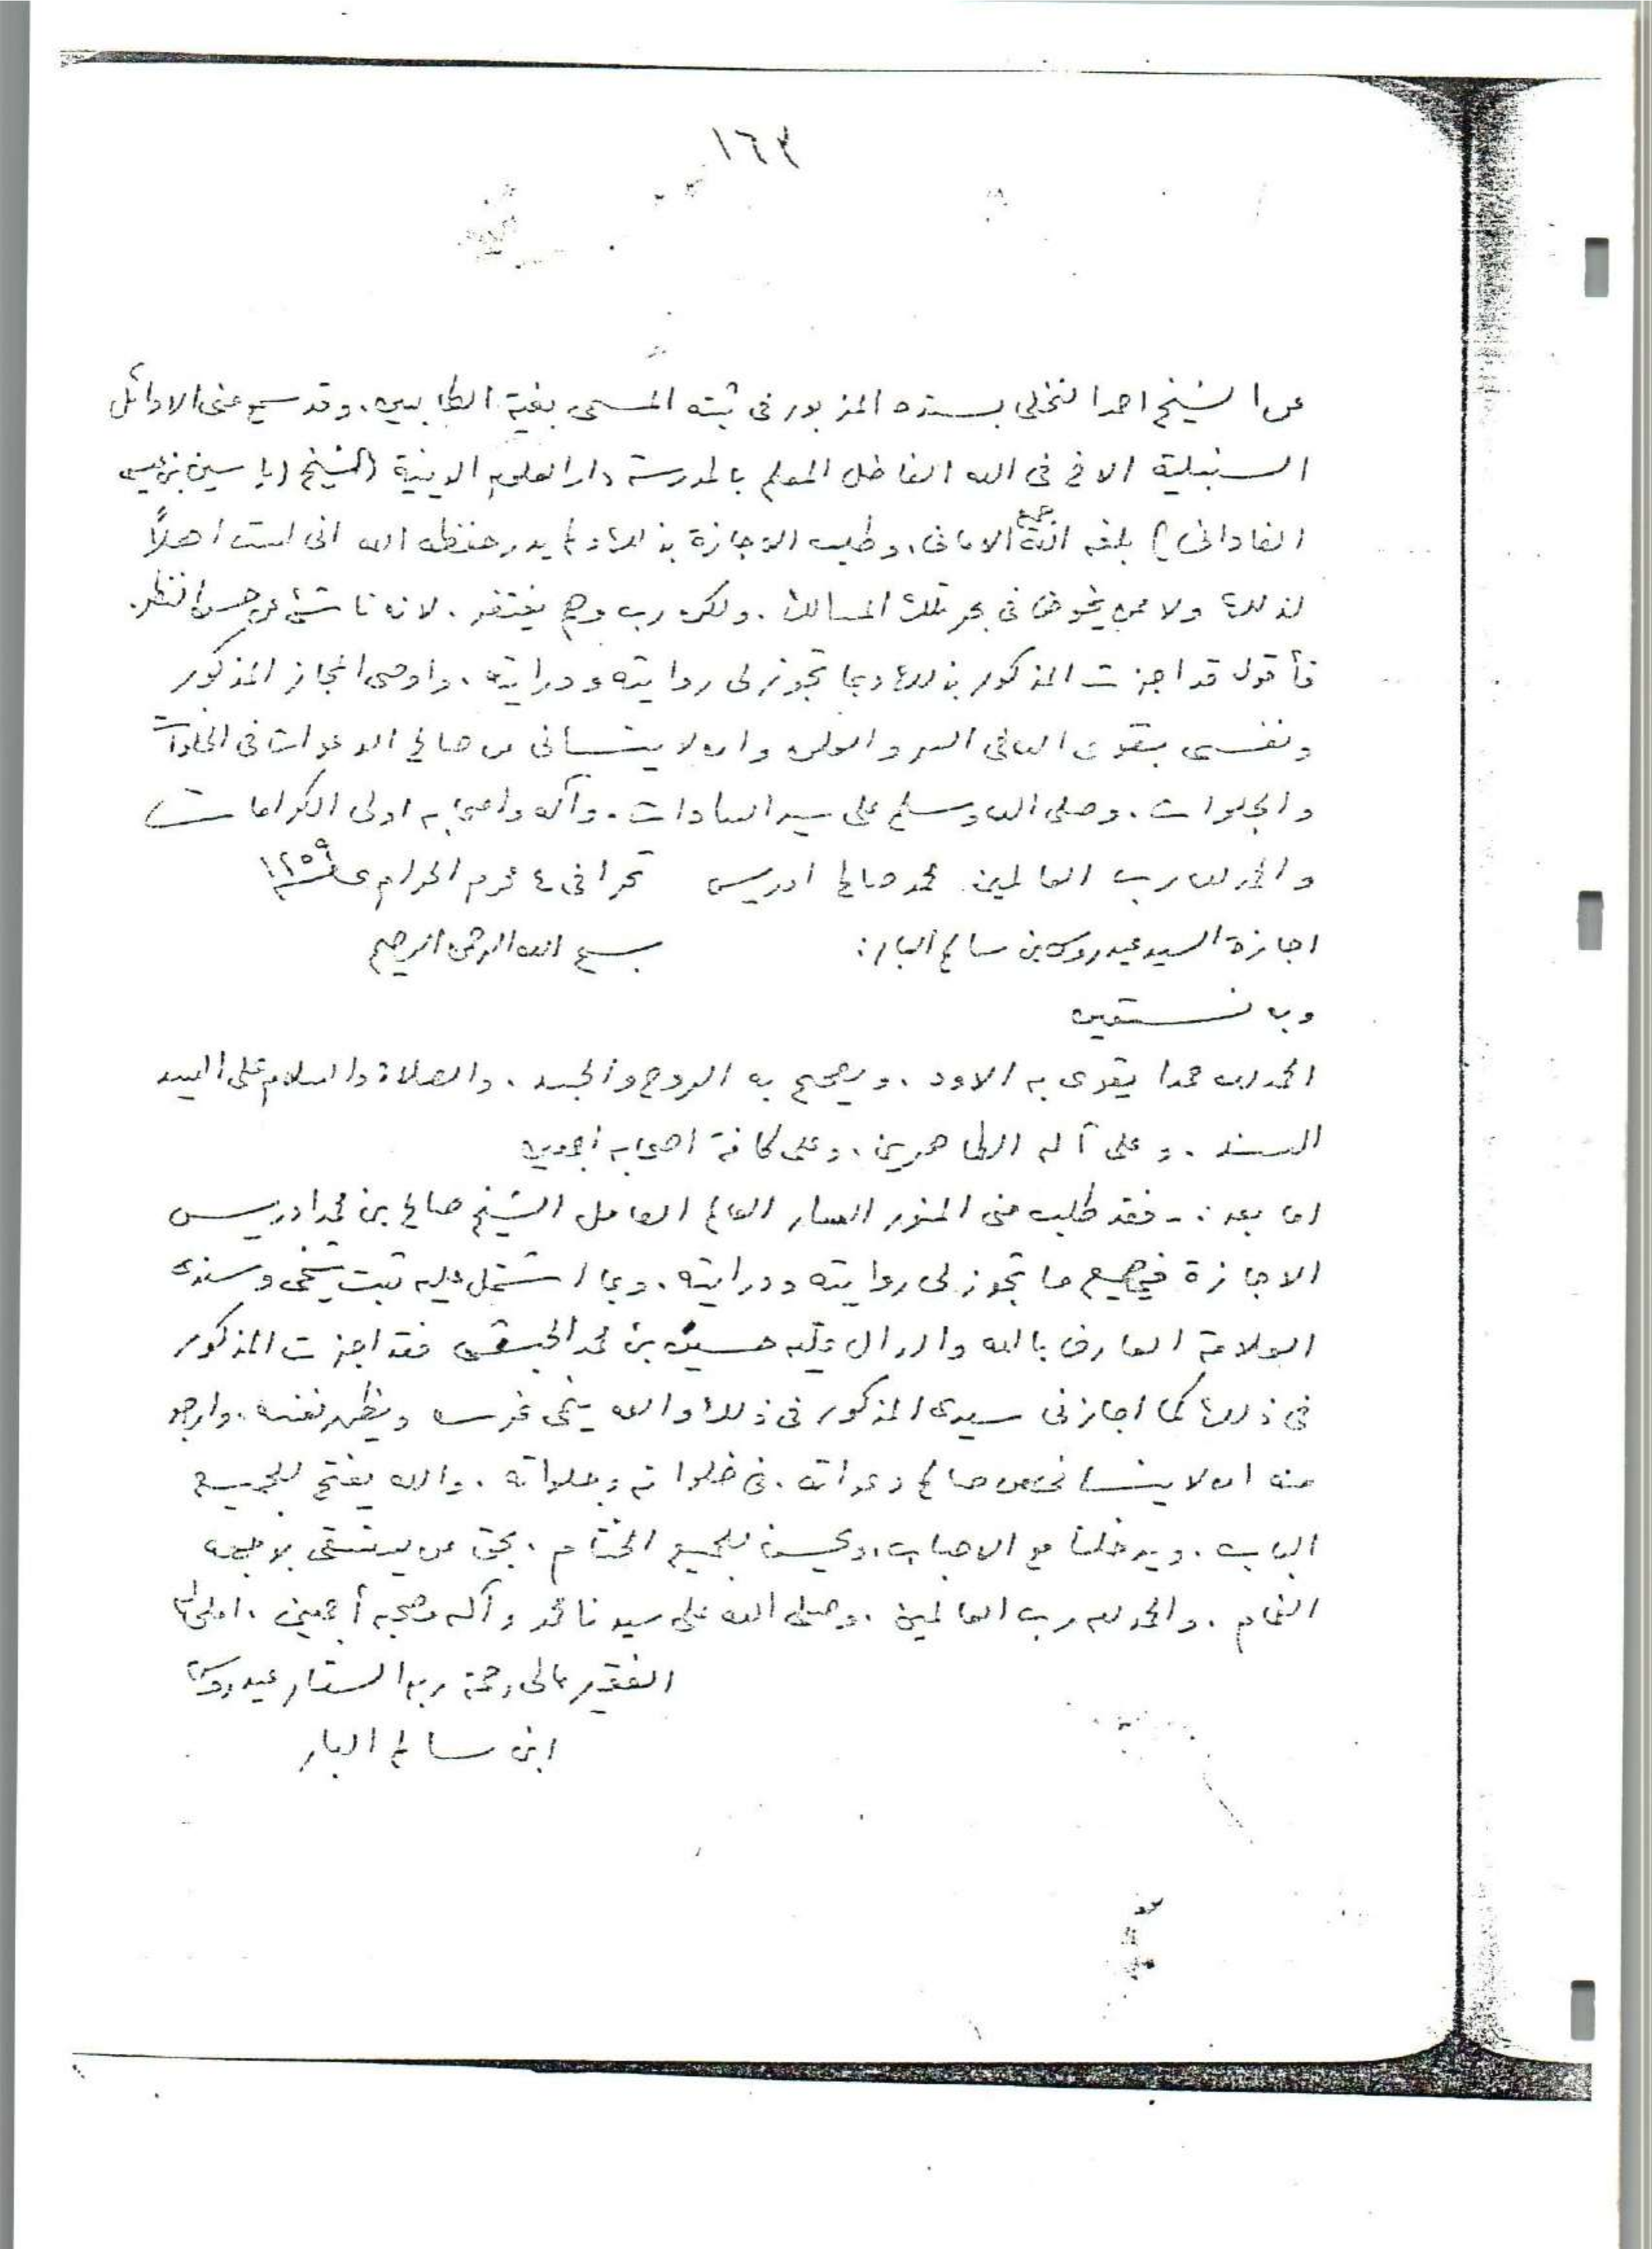 ١٦٣
عن الشيخ احمد النخلى بسنده المزبور فى ثبته المسمى بغية الطالبين. وقد سمع منى الاوائل
السنبلية الاخ فى الله الفاضل المعلم بالمدرسة دار العلوم الدينية (الشيخ (ياسين بن عيسى
الفادانى) بلغه الله جميع الامانى، وطلب الاجازة بذلك ولم يدر حفظه الله انى لست اهلاً
لذلك ولا ممن يخوض فى بحر تلك المسالك. ولكن رب وهم يغتفر. لانه ناشئ عن حسن النظر.
فأقول قد اجزت المذكور بذلك وبما تجوز لى روايته ودرايته، واوصى المجاز المذكور
ونفسى بتقوى الله فى السر والعلن وان لا ينسانى من صالح الدعوات فى الخلوات
والجلوات. وصلى الله وسلم على سيد السادات. وآله واصحابه اولى الكرامات
والحمد لله رب العالمين محمد صالح ادريس تحرا فى ٤ محرم الحرام عام ١٣٥٩
اجازة السيد عيدروس بن سالم البار: بسم الله الرحمن الرحيم
وبه نستعين
الحمد لله حمدا يقوى به الاود. ويصحح به الروح والجسد. والصلاة والسلام على السيد
السند. وعلى آله الطاهرين، وعلى كافة اصحابه اجمعين
اما بعد :- فقد طلب منى المنور السار العالم العامل الشيخ صالح بن محمد ادريس
الاجازة فى جميع ما تجوز لى روايته ودرايته. وبما اشتمل عليه ثبت شيخى وسندى
العلامة العارف بالله والدال عليه حسين بن محمد الحبشى فقد اجزت المذكور
فى ذلك كما اجازنى سيدى المذكور فى ذلك والله ينمى غرسه ويظهر نفعه. وارجو
منه ان لا ينسانى من صالح دعواته. فى خلواته وجلواته. والله يفتح للجميع
الباب. ويدخلنا مع الاحباب، ويحسن للجميع الختام. بحق من يستسقى بوجهه
الغمام. والحمد لله رب العالمين. وصلى الله على سيدنا محمد وآله وصحبه أجمعين.
الفقير الى رحمة ربه الستار عيدروس
ابن سالم البار